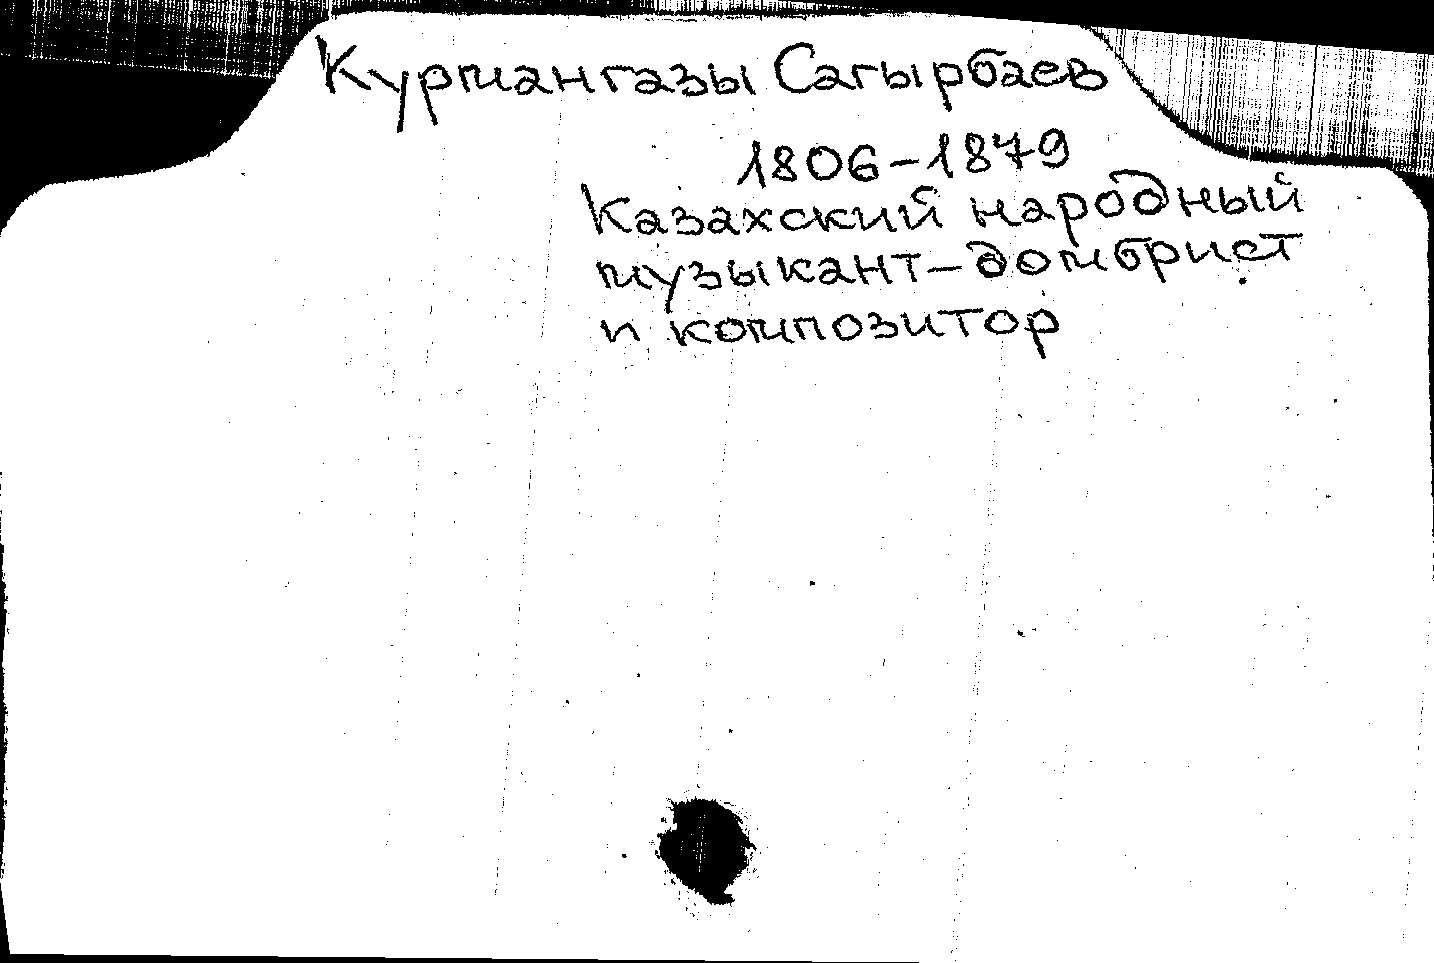 Курмангазы Сагырбаев
1806-1879
Казахский народный
музыкант-домбрист
и композитор